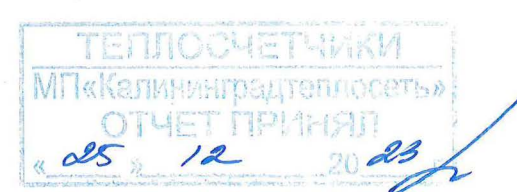 ТЕПЛОСЧЕТЧИКИ
МП«Калининградтеплосеть»
ОТЧЕТ ПРИНЯЛ
« 25 » 12 20 23